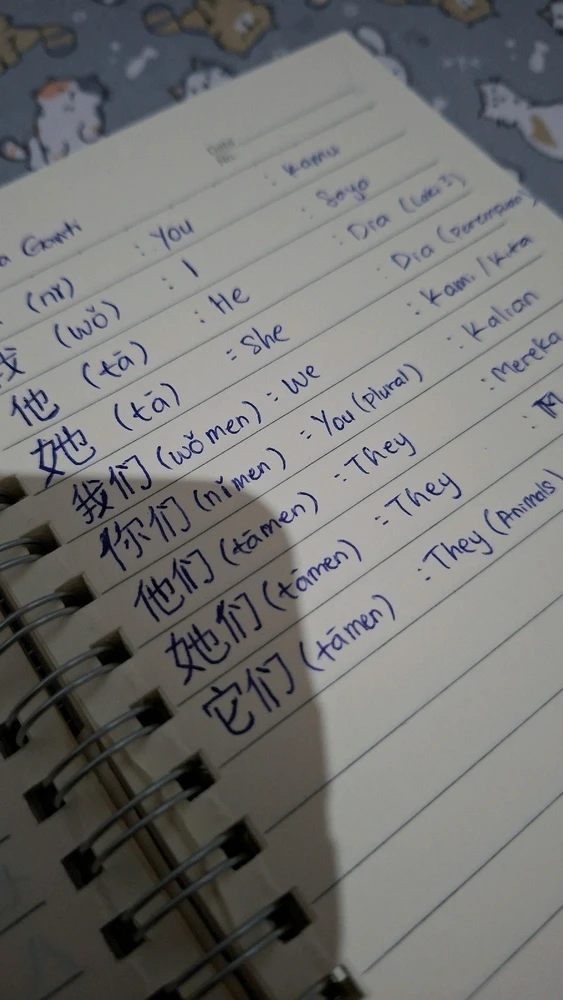 a Ganti
(nǐ) : You : Kamu
我 (wǒ) : I : Saya
他 (tā) : He : Dia (Laki²)
她 (tā) : She : Dia (Perempuan)
我们 (wǒmen) : We : Kami/Kita
你们 (nǐmen) : You (Plural) : Kalian
他们 (tāmen) : They : Mereka
她们 (tāmen) : They :
它们 (tāmen) : They (Animals)